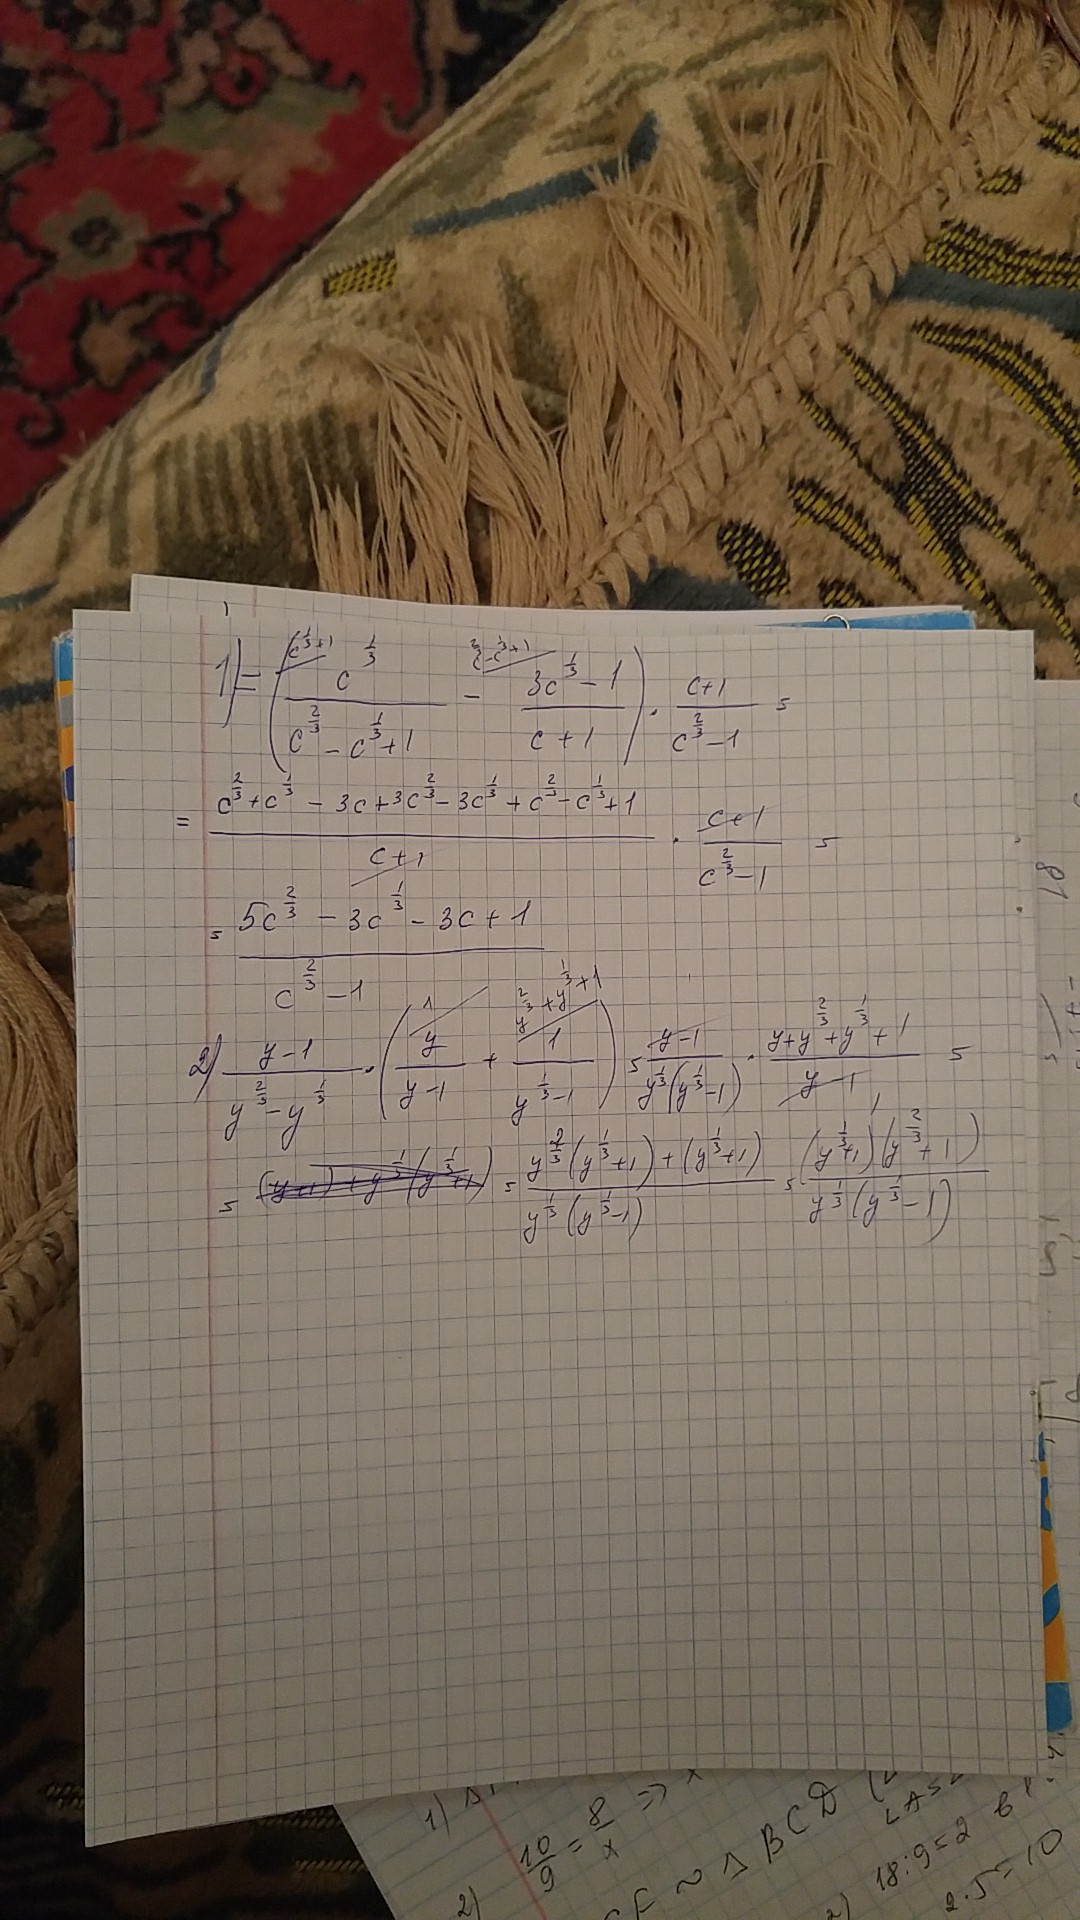 1) = (c^{1/3}+1 c^{1/3} / (c^{2/3} - c^{1/3} + 1) - c^{2/3} - c^{1/3} + 1 (3c^{1/3} - 1) / (c + 1)) · (c+1) / (c^{2/3} - 1) =
= (c^{2/3} + c^{1/3} - 3c + 3c^{2/3} - 3c^{1/3} + c^{2/3} - c^{1/3} + 1) / (c+1) · (c+1) / (c^{2/3} - 1) =
= (5c^{2/3} - 3c^{1/3} - 3c + 1) / (c^{2/3} - 1)
2) (y-1) / (y^{2/3} - y^{1/3}) · (1 y / (y-1) + y^{2/3} + y^{1/3} + 1 1 / (y^{1/3} - 1)) = (y-1) / (y^{1/3}(y^{1/3} - 1)) · (y + y^{2/3} + y^{1/3} + 1) / (y-1) =
= (y+1) + y^{1/3}(y^{1/3}+1) = (y^{2/3}(y^{1/3}+1) + (y^{1/3}+1)) / (y^{1/3}(y^{1/3}-1)) = (y^{1/3}+1)(y^{2/3}+1) / (y^{1/3}(y^{1/3}-1))
18
1)
2) 10/9 = 8/x => x
~ Δ BCD
18:9=2
2·5=10